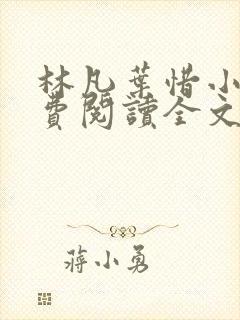 林凡葉惜小
費閱讀全文
蔣小勇